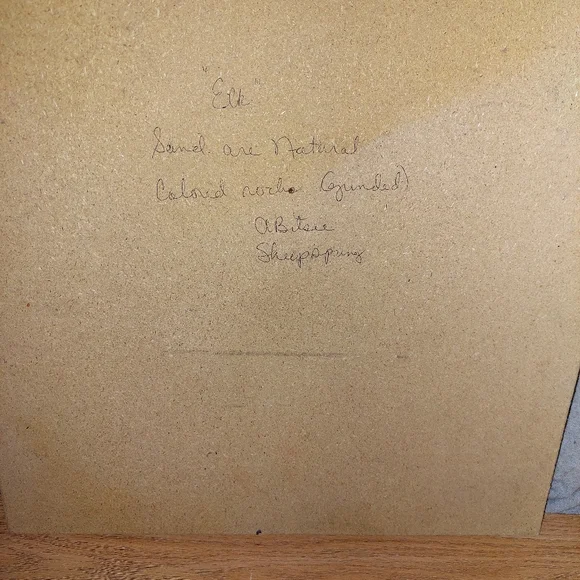 "Elk"
Sand are Natural
Colored rocks (grinded)
ABitsie
Sheepspring